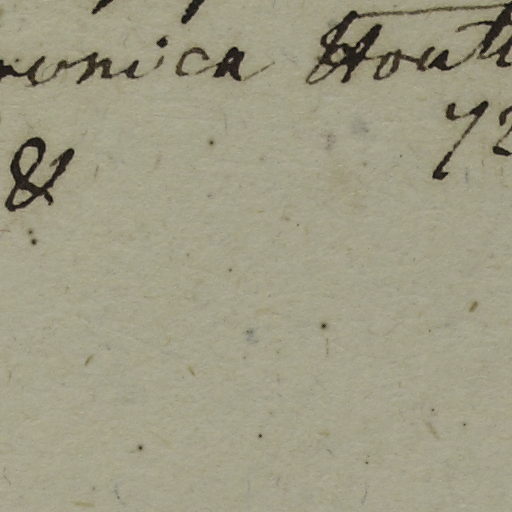 ronica Hout
72
&